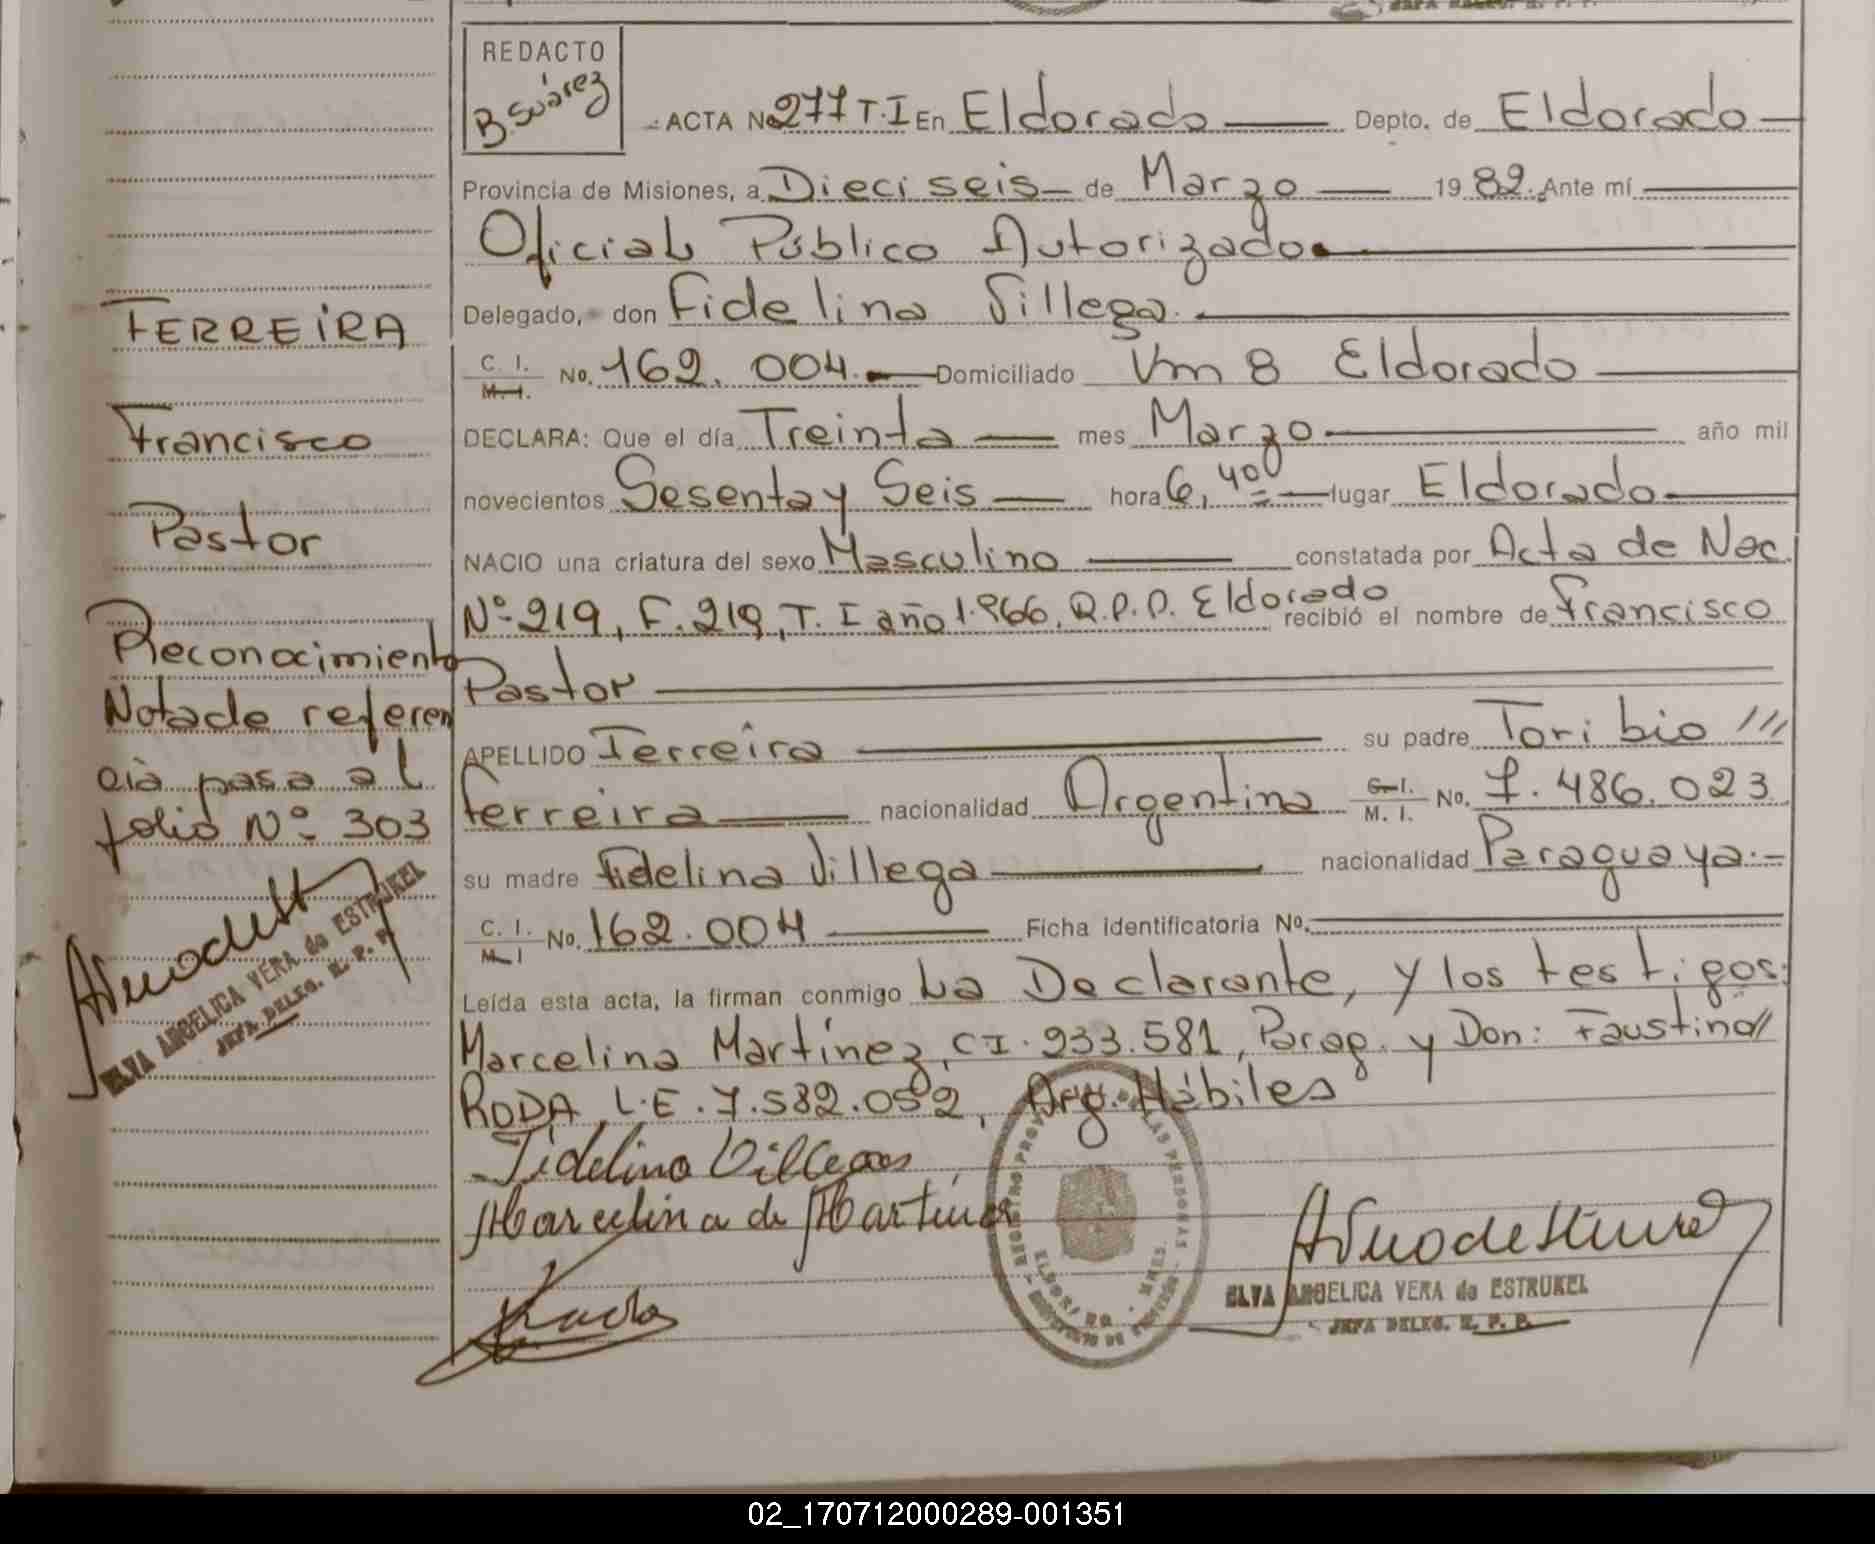 REDACTO
B. Suárez
ACTA No 277 T.I En Eldorado Depto. de Eldorado
Provincia de Misiones, a Dieciseis de Marzo 1982. Ante mí
Oficial Público Autorizado
Delegado, don Fidelina Villega.
C. I. M. I. No. 162.004. Domiciliado Km 8 Eldorado
DECLARA: Que el día Treinta mes Marzo año mil
novecientos Sesenta y Seis hora 6,40 lugar Eldorado
NACIO una criatura del sexo Masculino constatada por Acta de Nac.
Nº 219, F. 219, T. I año 1.966. R.P.P. Eldorado recibió el nombre de Francisco
Pastor
APELLIDO Ferreira su padre Toribio ///
Ferreira nacionalidad Argentina C. I. M. I. No. 7.486.023
su madre Fidelina Villega nacionalidad Paraguaya.-
C. I. M. I No. 162.004 Ficha identificatoria No.
Leída esta acta, la firman conmigo La Declarante, y los testigos:
Marcelina Martínez, CI. 933.581, Parag. y Don: Faustino//
RODA L.E. 7.582.052, Arg. Hábiles
Fidelina Villegas
Marcelina de Martinez
ELVA ANGELICA VERA de ESTRUKEL
JEFA DELEG. R. P. P.
FERREIRA
Francisco
Pastor
Reconocimiento
Nota de referen
cia pasa al
folio Nº 303
ELVA ANGELICA VERA de ESTRUKEL
JEFA DELEG. R. P. P.
02_170712000289-001351